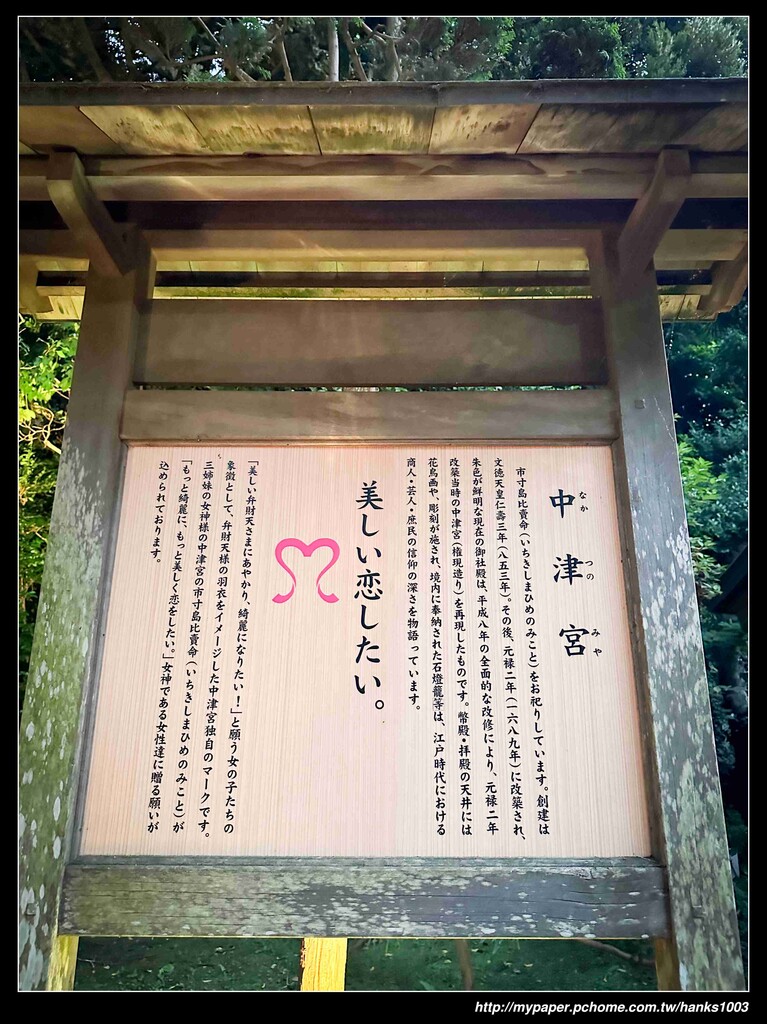 中津宮
なか つの みや
市寸島比賣命（いちきしまひめのみこと）をお祀りしています。創建は
文徳天皇仁壽三年（八五三年）。その後、元禄二年（一六八九年）に改築され、
朱色が鮮明な現在の御社殿は、平成八年の全面的な改修により、元禄二年
改築当時の中津宮（権現造り）を再現したものです。幣殿・拝殿の天井には
花鳥画や、彫刻が施され、境内に奉納された石燈籠等は、江戸時代における
商人・芸人・庶民の信仰の深さを物語っています。
美しい恋したい。
「美しい弁財天さまにあやかり、綺麗になりたい！」と願う女の子たちの
象徴として、弁財天様の羽衣をイメージした中津宮独自のマークです。
三姉妹の女神様の中津宮の市寸島比賣命（いちきしまひめのみこと）が
「もっと綺麗に、もっと美しく恋をしたい。」女神である女性達に贈る願いが
込められております。
http://mypaper.pchome.com.tw/hanks1003